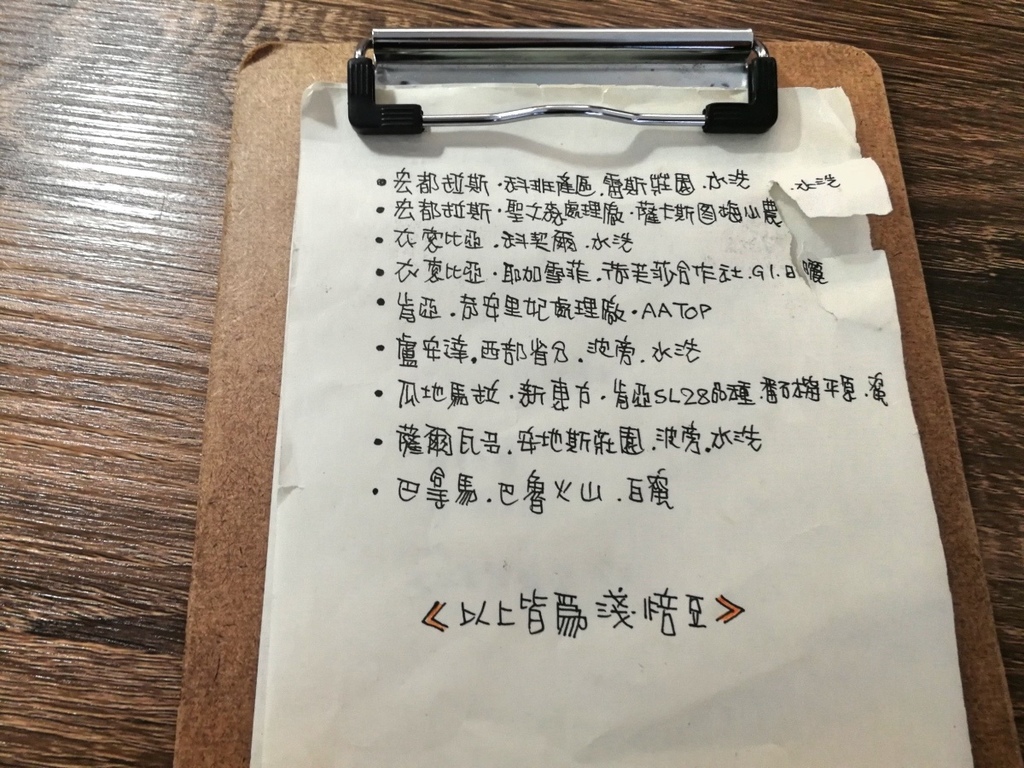 • 宏都拉斯·科班產區.雷斯莊園.水洗 .水洗
• 宏都拉斯·聖文森處理廠·薩卡斯图梅山農
• 衣索比亞.科契爾.水洗
• 衣索比亞·耶加雪菲.孔合作社.G1.日曬
• 肯亞.安里妃處理廠·AATOP
• 盧安達.西部省分.波旁.水洗
• 瓜地馬拉·新東方·肯亞SL28品種.平原.蜜
• 薩爾瓦多.安地斯莊園.波旁.水洗
• 巴拿馬.巴魯火山.白蜜
《以上皆為淺焙豆》